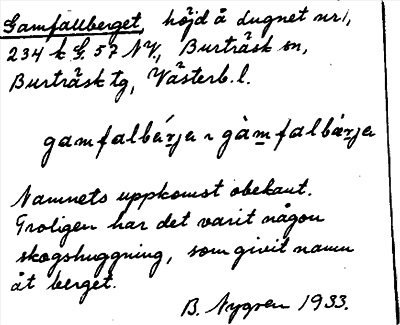 Gamfallberget, höjd å Lugnet nr 1,
234 k G. 57 NV, Burträsk sn,
Burträsk tg, Västerb. l.
gamfalbärja ~ gàmfalbärja
Namnets uppkomst obekant.
Troligen har det varit någon
skogshuggning, som givit namn
åt berget.
B. Nygren 1933.